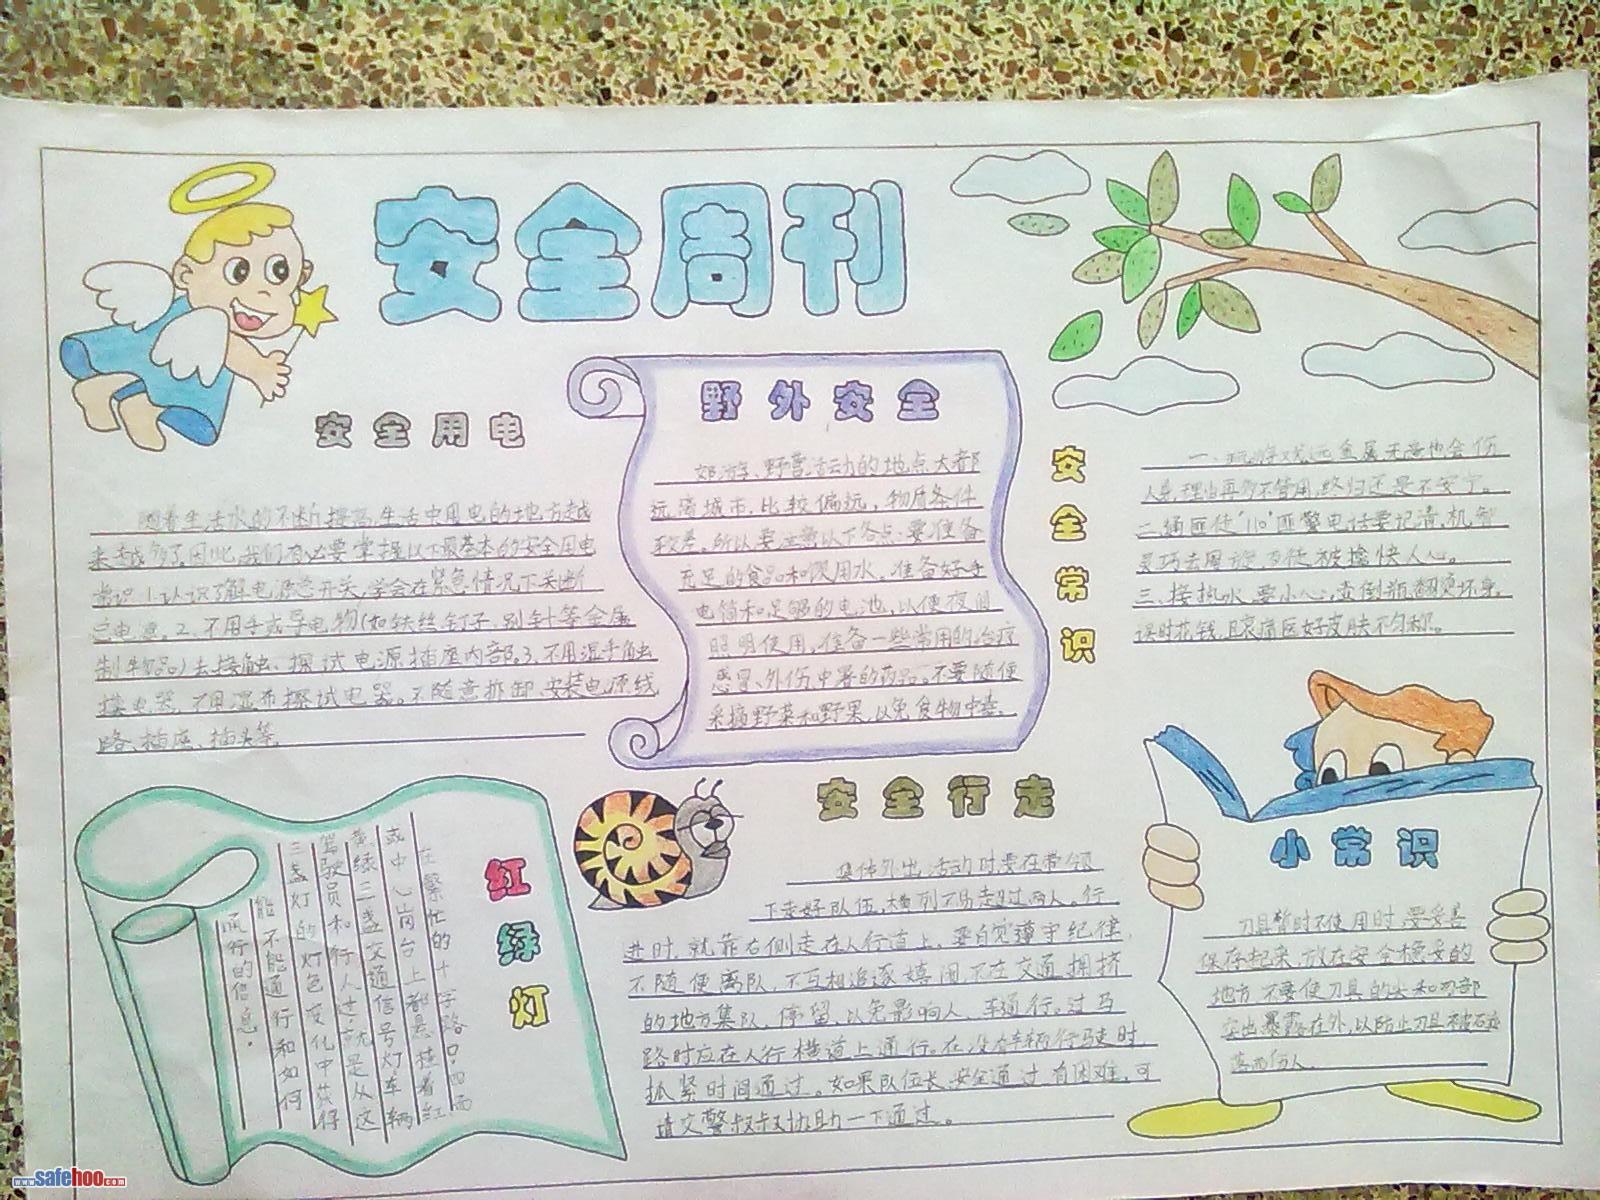 安全周刊
安全用电
随着生活水的不断提高,生活中用电的地方越
来越多了。因此,我们有必要掌握以下最基本的安全用电
常识:1.认识了解电源总开关,学会在紧急情况下关断
总电源。2、不用手或导电物(如铁丝、钉子、别针等金属
制物品)去接触、探试电源插座内部。3、不用湿手触
摸电器,不用湿布擦试电器。不随意拆卸、安装电源线
路、插座、插头等。
野外安全
郊游、野营活动的地点大都
远离城市,比较偏远,物质条件
较差。所以要注意以下各点:要准备
充足的食品和饮用水。准备好手
电筒和足够的电池,以便夜间
照明使用。准备一些常用的治疗
感冒、外伤、中暑的药品。不要随便
采摘野菜和野果,以免食物中毒。
安全常识
一、玩游戏远金属无意也会伤
人身,理由再多不管用,终归还是不安宁。
二、遇匪徒“110”匪警电话要记清,机智
灵巧去周旋,歹徒被擒快人心。
三、接热水,要小心,壶倒瓶翻烫坏身,
误时花钱,且哀痛医好皮肤不匀称。
红绿灯
在繁忙的十字路口,四面
或中心岗台上都悬挂着红
黄绿三盏交通信号灯,车辆
驾驶员和行人过,就是从这
三盏灯的灯色变化中获得
能不能通行和如何
通行的信息。
安全行走
集体外出活动时要在带领
下走好队伍,横列不易超过两人。行
进时,就靠右侧走在人行道上。要自觉遵守纪律,
不随便离队,不互相追逐嬉闹,不在交通拥挤
的地方集队、停留,以免影响人、车通行。过马
路时应在人行横道上通行。在没有车辆行驶时
抓紧时间通过。如果队伍长,安全通过有困难,可
请交警叔叔协助一下通过。
小常识
刀具暂时不使用时,要妥善
保存起来,放在安全稳妥的
地方,不要使刀具的尖和刃部
突出暴露在外,以防止刀具被碰
落而伤人。
www.safehoo.com